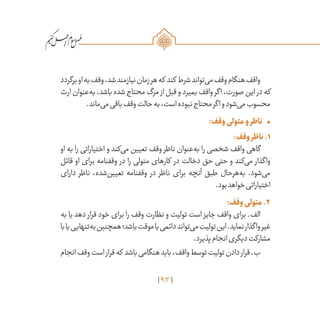 واقف هنگام وقف می‌تواند شرط کند که هر زمان نیازمند شد، وقف به او برگردد
که در این صورت، اگر واقف بمیرد و قبل از مرگ محتاج شده باشد، به‌عنوان ارث
محسوب می‌شود و اگر محتاج نبوده است، به حالت وقف باقی می‌ماند.
• ناظر و متولی وقف:
۱. ناظر وقف:
گاهی واقف شخصی را به‌عنوان ناظر وقف تعیین می‌کند و اختیاراتی را به او
واگذار می‌کند و حتی حق دخالت در کارهای متولی را در وقفنامه برای او قائل
می‌شود. به‌هرحال طبق آنچه برای ناظر در وقفنامه تعیین‌شده، ناظر دارای
اختیاراتی خواهد بود.
۲. متولی وقف:
الف. برای واقف جایز است تولیت و نظارت وقف را برای خود قرار دهد یا به
غیر واگذار نماید. این تولیت می‌تواند دائمی یا موقت باشد؛ همچنین به‌تنهایی یا با
مشارکت دیگری انجام پذیرد.
ب. قرار دادن تولیت توسط واقف، باید هنگامی باشد که قرار است وقف انجام
|۹۳|